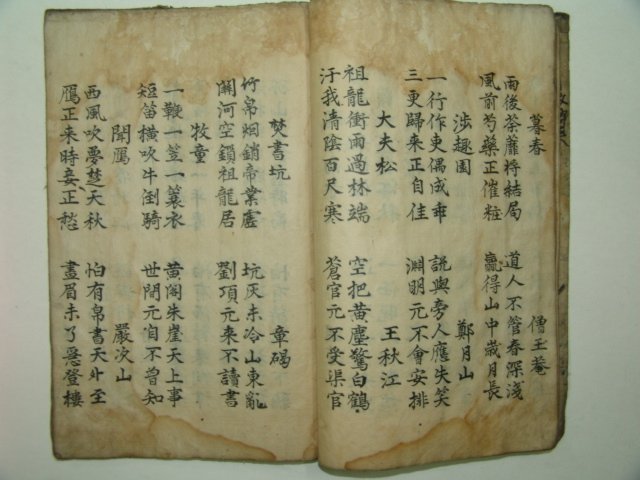 暮春 僧玉菴
雨後荼蘼將結局 道人不管春深淺
風前芍藥正催粧 贏得山中歲月長
涉趣園 鄭月山
一行作吏偶成乖 說與旁人應失笑
三更歸來正自佳 淵明元不會安排
大夫松 王秋江
祖龍衝雨過林端 空把黃塵驚白鶴
汙我清陰百尺寒 蒼官元不受渠官
焚書坑 章碣
竹帛烟銷帝業虛 坑灰未冷山東亂
關河空鎖祖龍居 劉項元來不讀書
牧童
一鞭一笠一簑衣 黃閣朱崖天上事
短笛橫吹牛倒騎 世間元自不曾知
聞鴈 嚴次山
西風吹夢楚天秋 怕有帛書天外至
鴈正來時妾正愁 畫眉未了急登樓